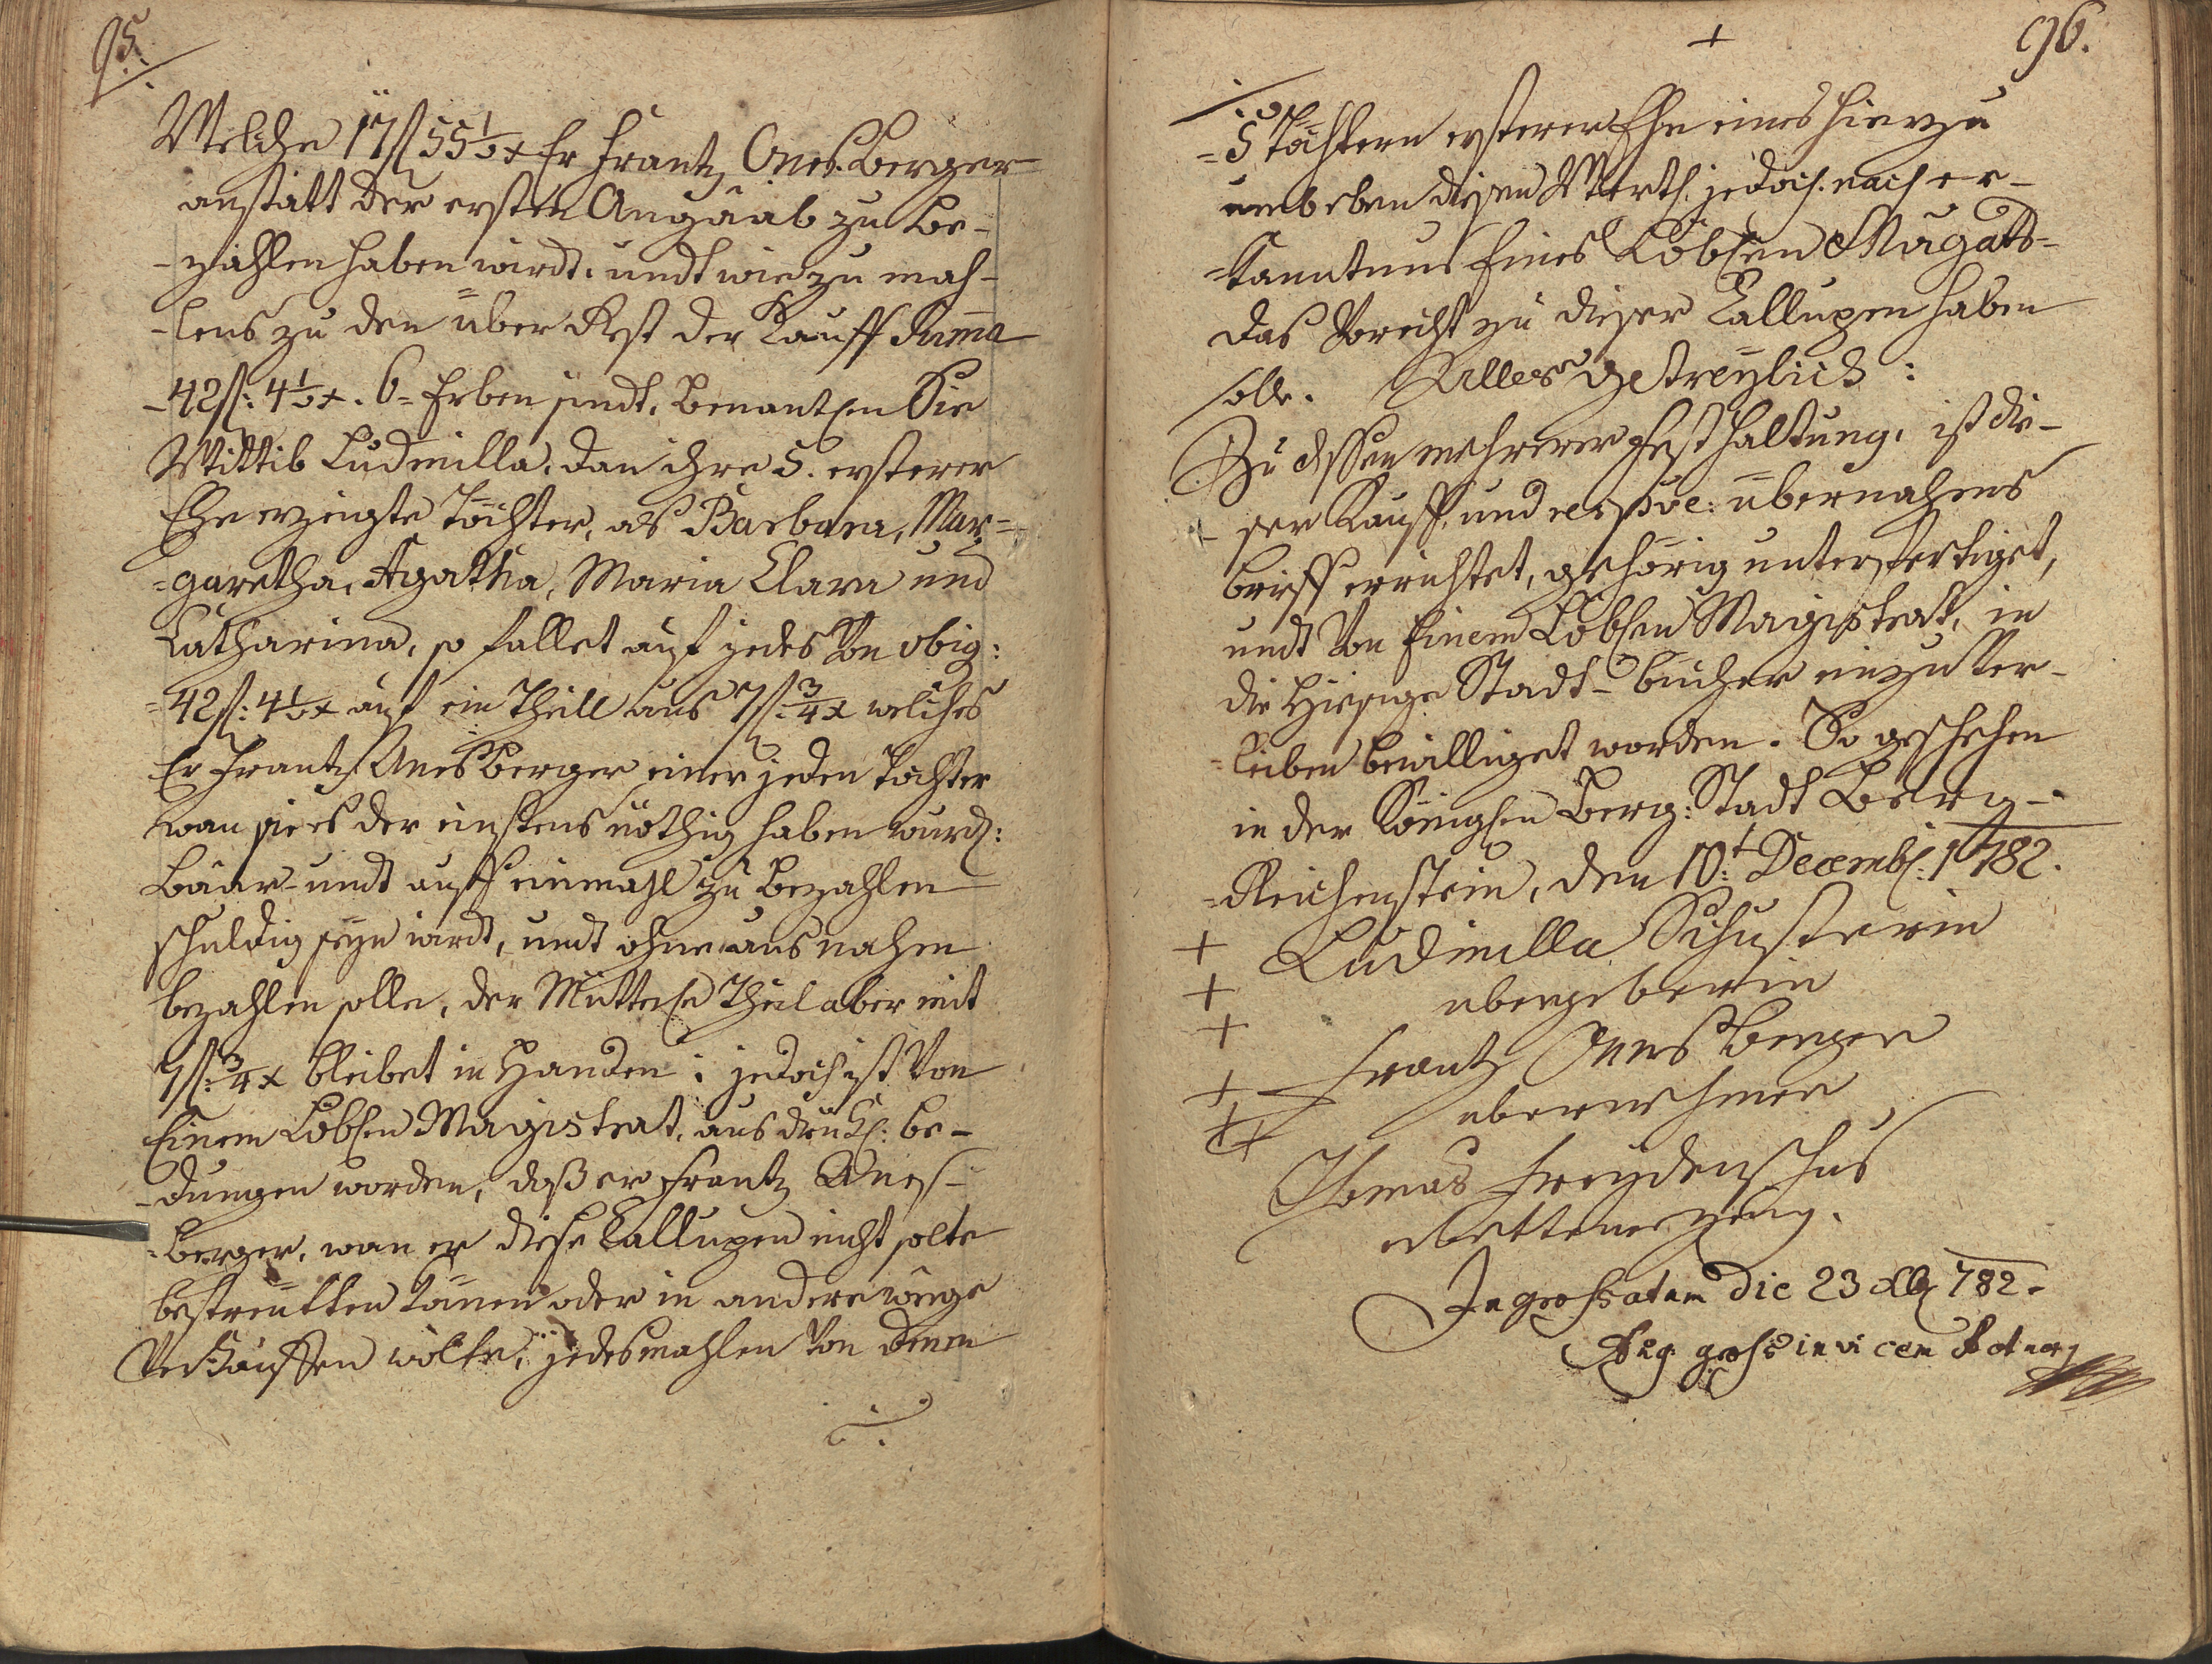 95.
Welche 17 fl 55 1/2 x Er Frantz Anes Berger
anstatt der ersten Angaab zu be-
-zahlen haben wirdt. undt wie zu mah-
-lens zu den über Rest der Kauff Suma
-42 fl: 4 1/2 x. 6= Erben sindt, benantlen Sie
Wittib Ludmilla, dan ihre 5. ersterer
Ehe erzeigte Töchter, als Barbara, Mar=
=garetha, Agatha, Maria Clara und
Catharina, so fallet auf jedes von obig:
=42 fl: 4 1/2 x auf ein Theill aus 7 fl: 3/4 x welches
Er Frantz Anes Berger einer jeden Tochter
wan sie es der einstens nöthig haben wurd:
Bäar- undt auff einmahl zu bezahlen
schuldig seyn wirdt, undt ohne ausnahm
bezahlen solle, der Mütterln Theil aber mit
7 fl: 3/4 x bleibet in Handen: jedoch ist von
Einem Löblen Magistrat, ausdrükl: be-
-dungen worden, daß er Frantz Anes-
=berger, wan er diese Callupen nicht solte
bestreütten können oder in andere weege
Verkauffen wolte, jedesmahlen von denen
+
96.
=5 Töchtern ersterer Ehe eines hierzu
umb eben diesen Werth, jedoch nach er-
=kantnus Eines Löblen Magats=
das Vorrecht zu dieser Callupen haben
solle. Alles getreylich:
Zu dessen mehrerer Festhaltung, ist die-
ser Kauff und respve: übernahms
brieff errichtet, gehörig unterfertiget,
undt von Einem Löblen Magistrat, in
die Hiesige Stadt-bücher einzuver-
=leiben bewilliget worden. So geschehen
in der Königlen Berg: Stadt Berg-
=Reichenstein, den 10:t Decemb: 1782.
+ Ludmilla Schusterin
+ übergeberin
+
Frantz Anes Berger
+ übernehmer
++
Thomas Freydenschus
erbettener zeug.
Ingrossatum die 23 Xb 782.